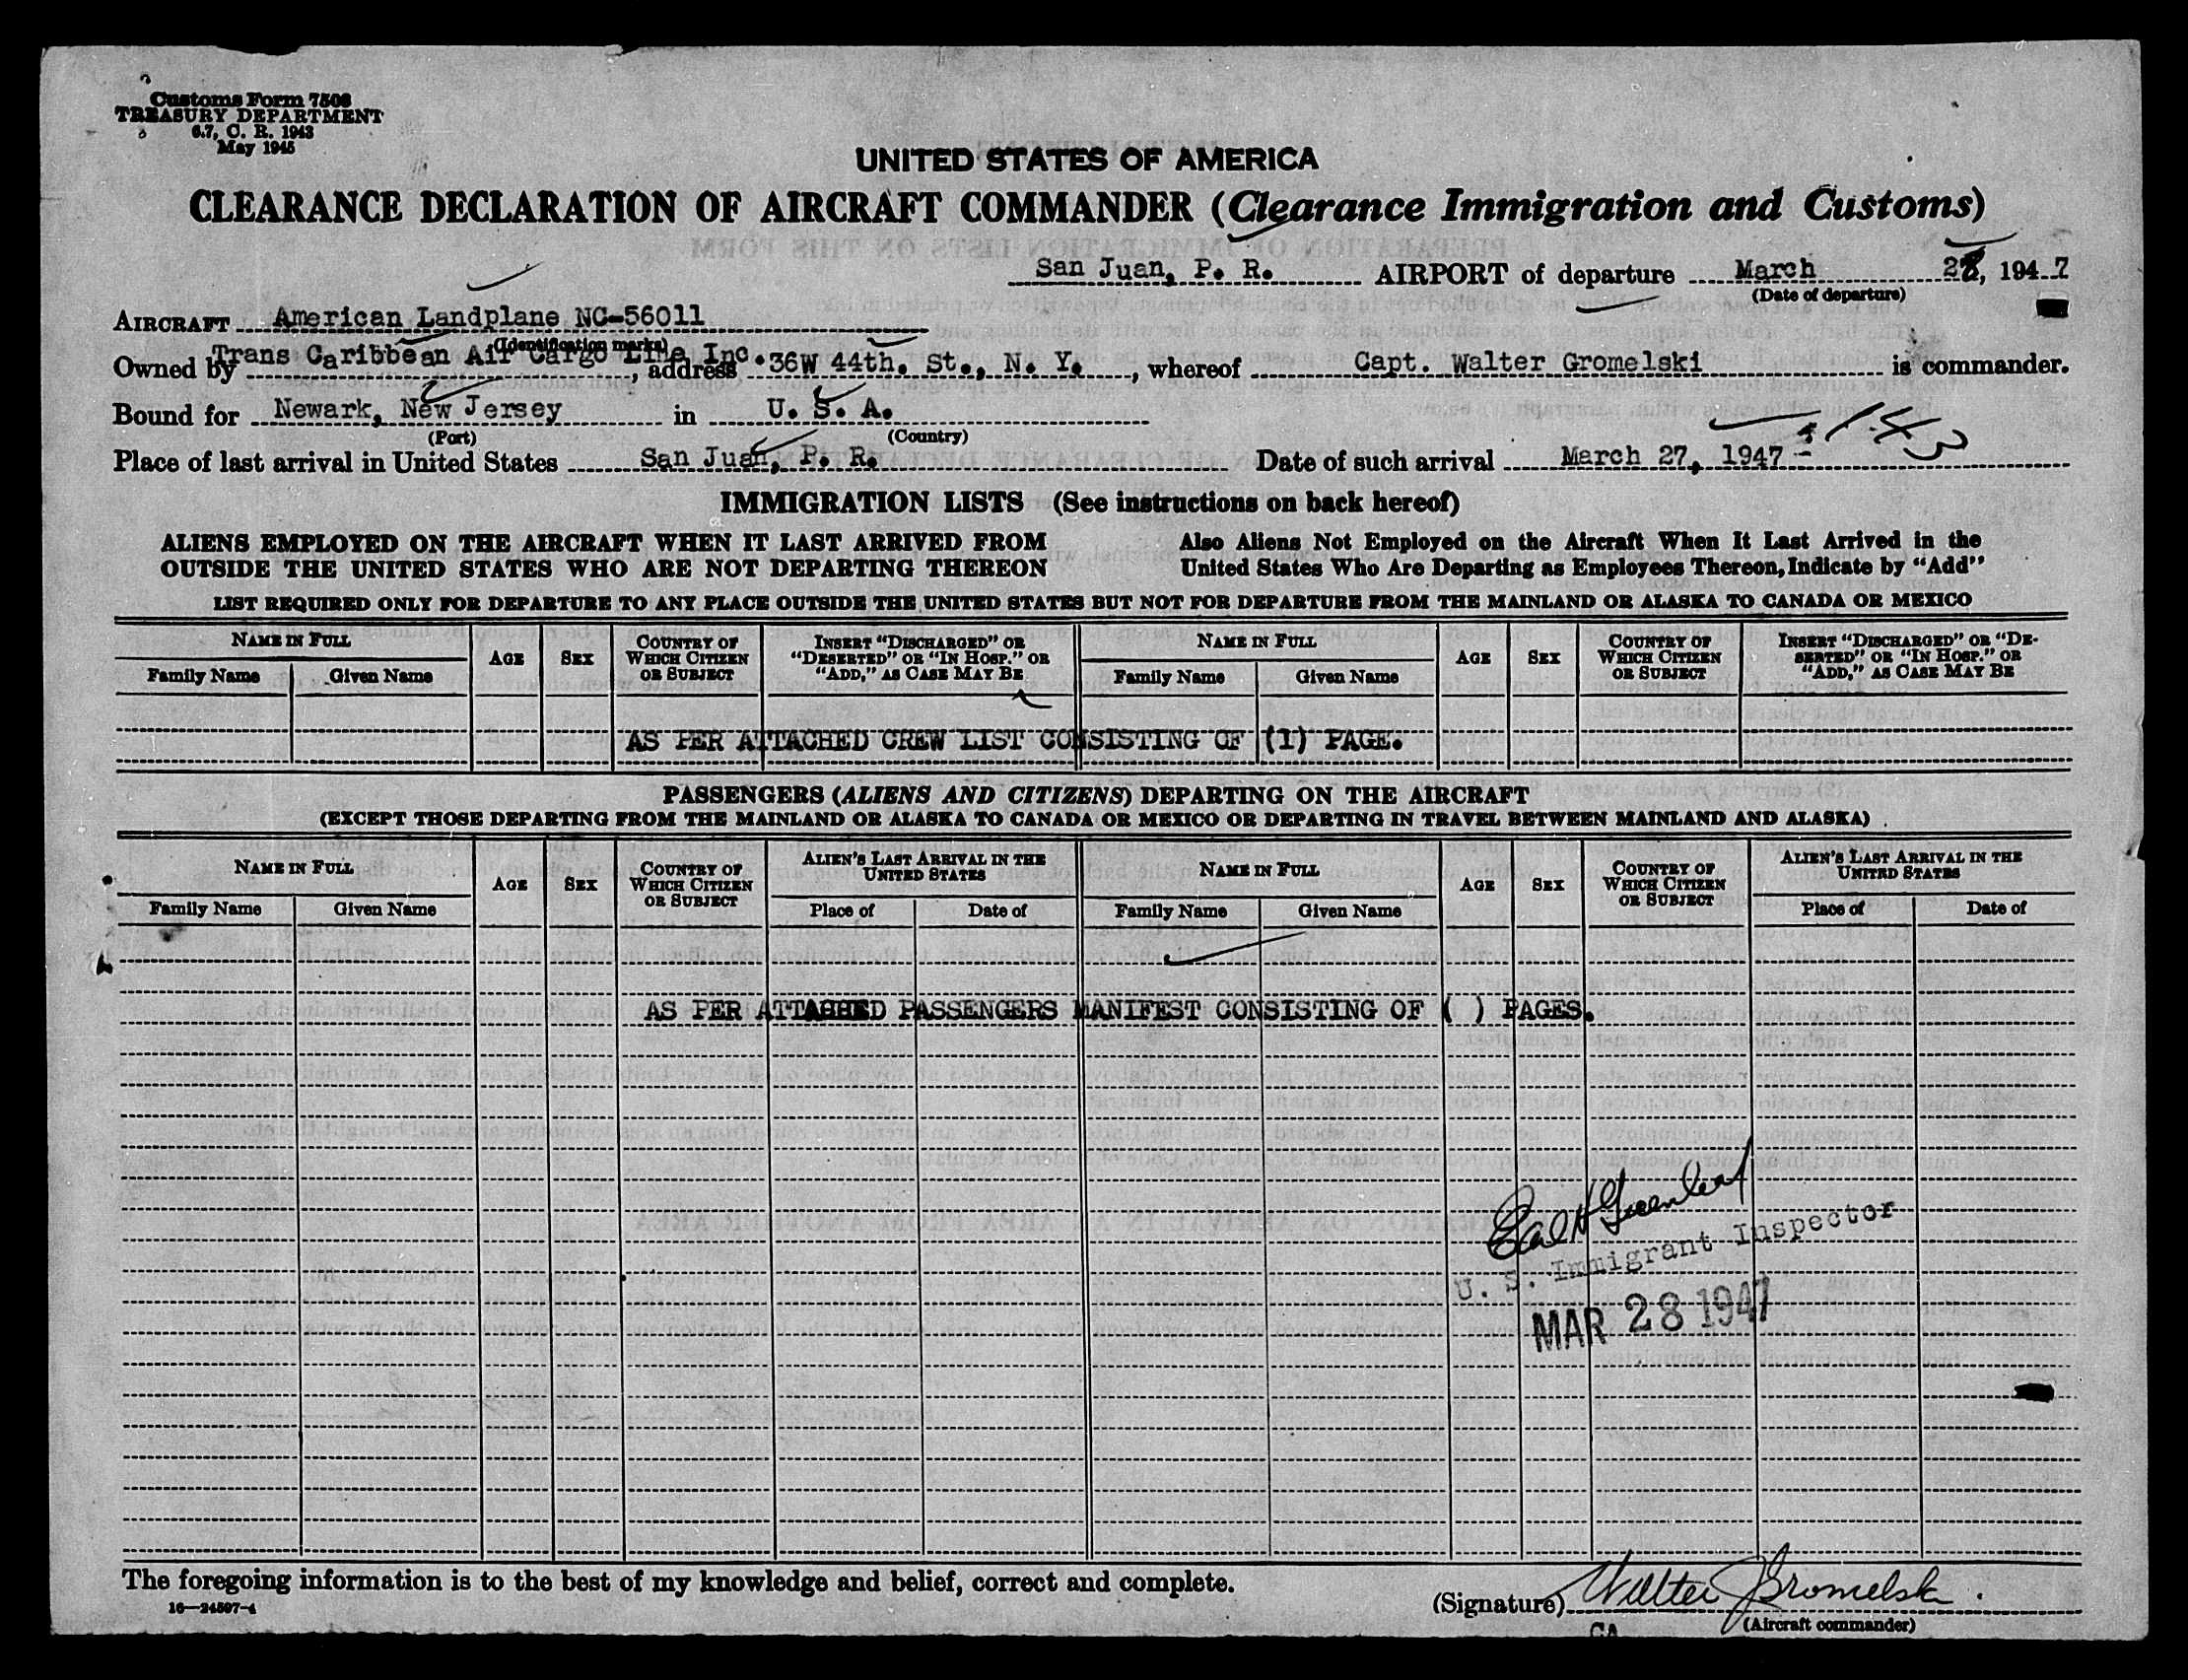 Customs Form 7508
TREASURY DEPARTMENT
6.7, C. R. 1943
May 1945
UNITED STATES OF AMERICA
CLEARANCE DECLARATION OF AIRCRAFT COMMANDER (Clearance Immigration and Customs)
San Juan, P. R. AIRPORT of departure March 28, 1947
(Date of departure)
AIRCRAFT American Landplane NC-56011
(Identification marks)
Owned by Trans Caribbean Air Cargo Line Inc., address 36W 44th. St., N. Y., whereof Capt. Walter Gromelski is commander.
Bound for Newark, New Jersey in U. S. A.
(Port) (Country)
Place of last arrival in United States San Juan, P. R. Date of such arrival March 27, 1947
IMMIGRATION LISTS (See instructions on back hereof)
ALIENS EMPLOYED ON THE AIRCRAFT WHEN IT LAST ARRIVED FROM Also Aliens Not Employed on the Aircraft When It Last Arrived in the
OUTSIDE THE UNITED STATES WHO ARE NOT DEPARTING THEREON United States Who Are Departing as Employees Thereon, Indicate by "Add"
LIST REQUIRED ONLY FOR DEPARTURE TO ANY PLACE OUTSIDE THE UNITED STATES BUT NOT FOR DEPARTURE FROM THE MAINLAND OR ALASKA TO CANADA OR MEXICO
NAME IN FULL
Family Name Given Name
AGE
SEX
COUNTRY OF
WHICH CITIZEN
OR SUBJECT
INSERT "DISCHARGED" OR
"DESERTED" OR "IN HOSP." OR
"ADD," AS CASE MAY BE
NAME IN FULL
Family Name Given Name
AGE
SEX
COUNTRY OF
WHICH CITIZEN
OR SUBJECT
INSERT "DISCHARGED" OR "DE-
SERTED" OR "IN HOSP." OR
"ADD," AS CASE MAY BE
AS PER ATTACHED CREW LIST CONSISTING OF (1) PAGE.
PASSENGERS (ALIENS AND CITIZENS) DEPARTING ON THE AIRCRAFT
(EXCEPT THOSE DEPARTING FROM THE MAINLAND OR ALASKA TO CANADA OR MEXICO OR DEPARTING IN TRAVEL BETWEEN MAINLAND AND ALASKA)
NAME IN FULL
Family Name Given Name
AGE
SEX
COUNTRY OF
WHICH CITIZEN
OR SUBJECT
ALIEN'S LAST ARRIVAL IN THE
UNITED STATES
Place of Date of
NAME IN FULL
Family Name Given Name
AGE
SEX
COUNTRY OF
WHICH CITIZEN
OR SUBJECT
ALIEN'S LAST ARRIVAL IN THE
UNITED STATES
Place of Date of
AS PER ATTACHED PASSENGERS MANIFEST CONSISTING OF ( ) PAGES.
Earl H Greenleaf
U. S. Immigrant Inspector
MAR 28 1947
The foregoing information is to the best of my knowledge and belief, correct and complete.
16—24597-4
(Signature) Walter Gromelski
(Aircraft commander)
CA